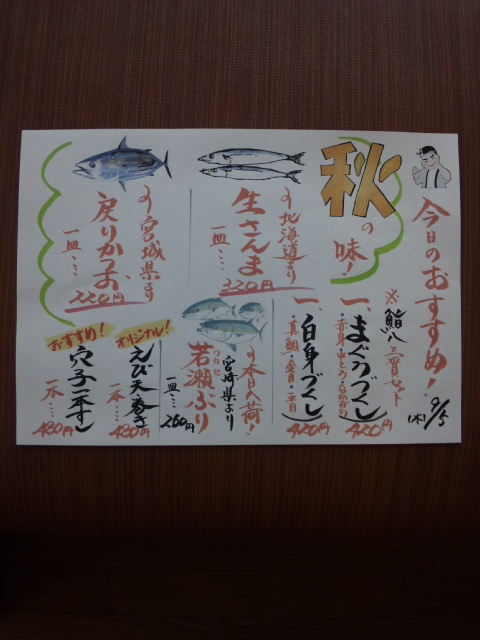 今日のおすすめ!
9/5
(木)
秋の味!
※鮨八 三貫セット
一、まぐろづくし
420円
一、白身づくし
420円
♪北海道より
生さんま
一皿…
320円
♪宮城県より
戻りかつお
一皿…
220円
♪本日入荷!
宮崎県より
若瀬ぶり
ワカセ
一皿…
260円
オリジナル!
えび天巻き
一本…
480円
おすすめ!
穴子一本すし
一本…
480円